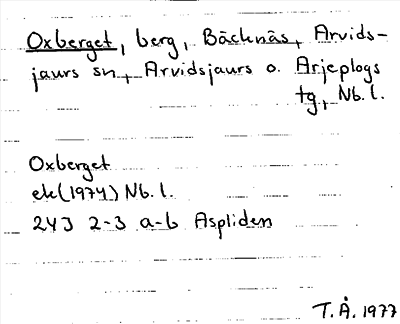 Oxberget, berg, Bäcknäs, Arvids-
jaurs sn, Arvidsjaurs o. Arjeplogs
tg, Nb. l.
Oxberget
ek (1974) Nb. l.
24J 2-3 a-b Aspliden
T. Å. 1977